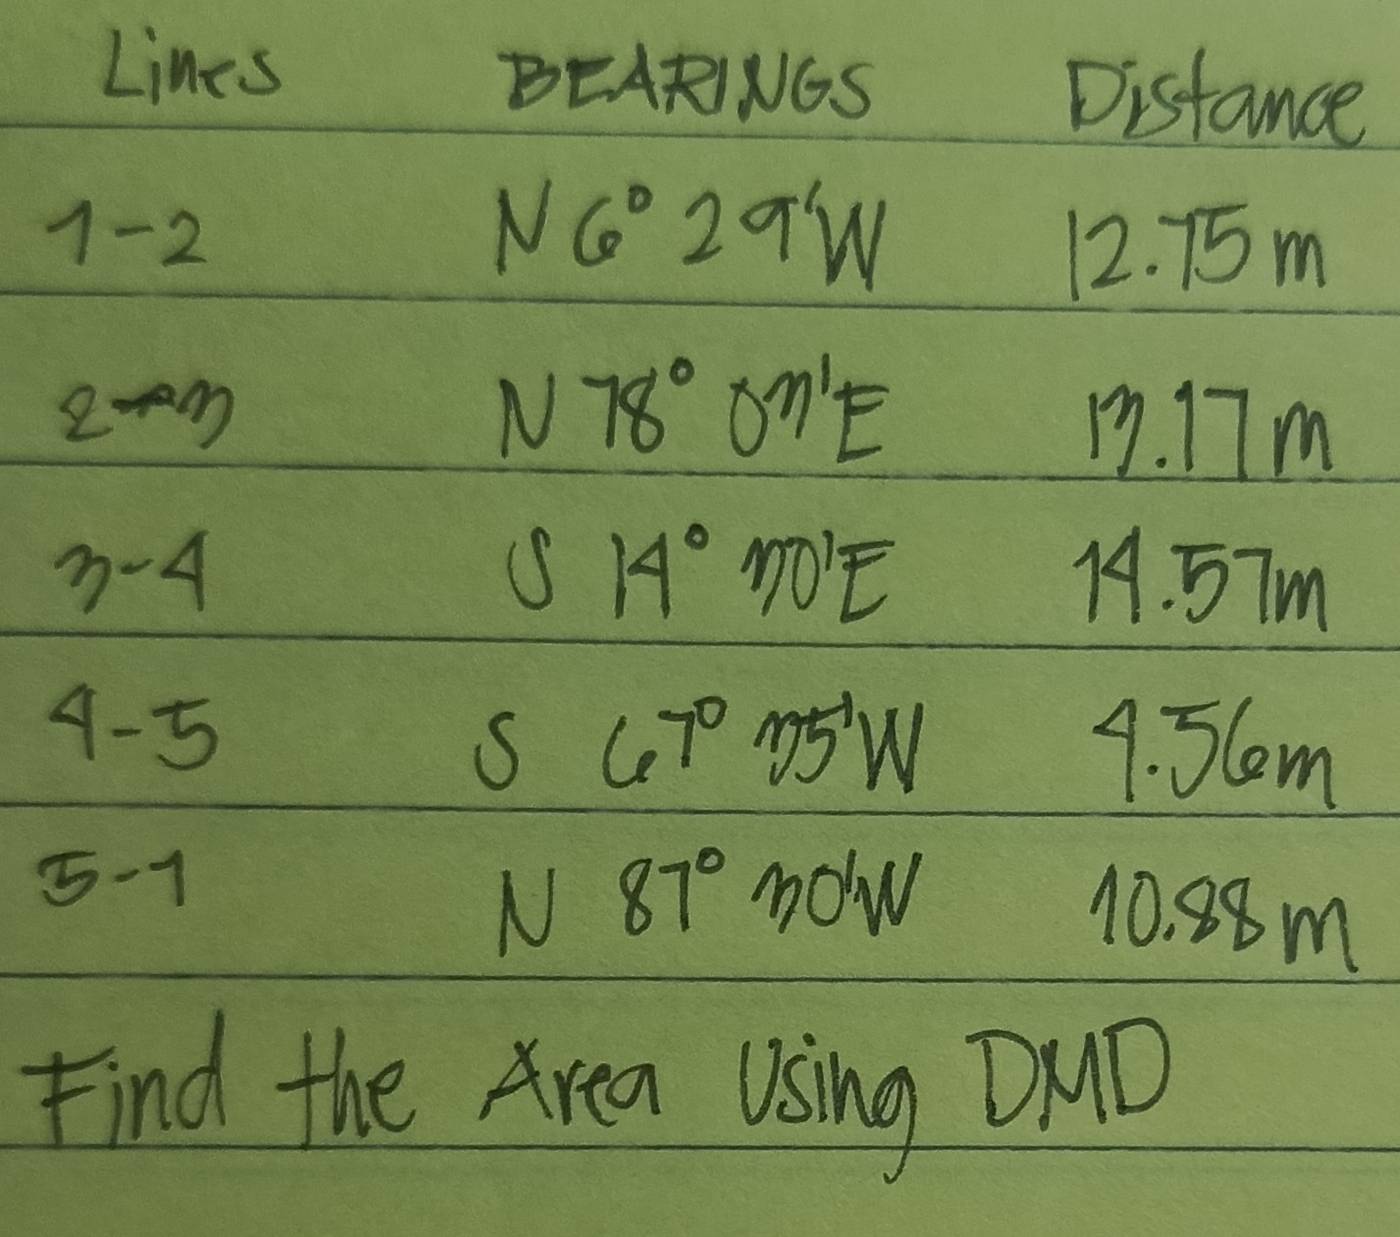 Lines BEARINGS Distance
1-2 N 6° 29'W 12.75 m
2-3 N 78° 03'E 13.17 m
3-4 S 14° 30'E 14.57m
4-5 S 67° 35'W 4.56m
5-1 N 87° 30'W 10.88 m
Find the Area Using DMD